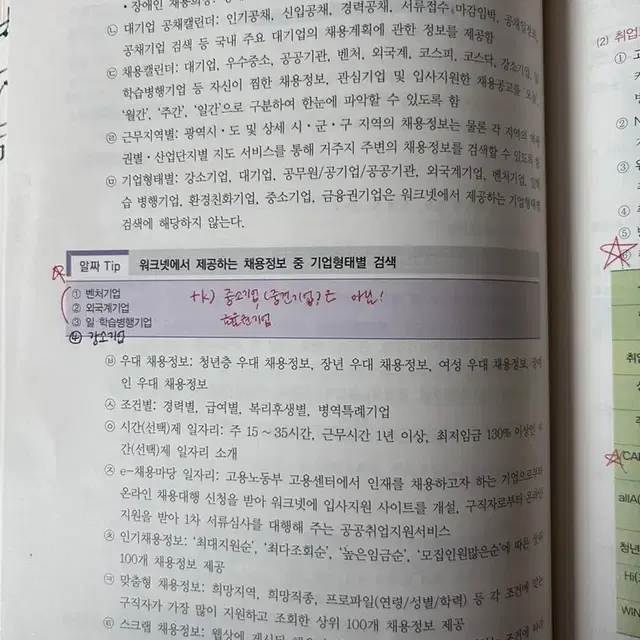 · 장애인 채용희망:
㉡ 대기업 공채캘린더: 인기공채, 신입공채, 경력공채, 서류접수, 마감임박, 공채일정표,
공채기업 검색 등 국내 주요 대기업의 채용계획에 관한 정보를 제공함
㉢ 채용캘린더: 대기업, 우수중소, 공공기관, 벤처, 외국계, 코스피, 코스닥, 강소기업, 일
학습병행기업 등 자신이 찜한 채용정보, 관심기업 및 입사지원한 채용공고를 '오늘',
'월간', '주간', '일간'으로 구분하여 한눈에 파악할 수 있도록 함
㉣ 근무지역별: 광역시·도 및 상세 시·군·구 지역의 채용정보는 물론 각 지역의
권별·산업단지별 지도 서비스를 통해 거주지 주변의 채용정보를 검색할 수 있도록
㉤ 기업형태별: 강소기업, 대기업, 공무원/공기업/공공기관, 외국계기업, 벤처기업, 일학
습 병행기업, 환경친화기업, 중소기업, 금융권기업은 워크넷에서 제공하는 기업형태별
검색에 해당하지 않는다.
알짜 Tip 워크넷에서 제공하는 채용정보 중 기업형태별 검색
① 벤처기업
② 외국계기업
③ 일 학습병행기업
④ 강소기업
중소기업(중견기업)은 아님!
금융권기업
㉥ 우대 채용정보: 청년층 우대 채용정보, 장년 우대 채용정보, 여성 우대 채용정보, 장애
인 우대 채용정보
㉦ 조건별: 경력별, 급여별, 복리후생별, 병역특례기업
㉧ 시간(선택)제 일자리: 주 15~35시간, 근무시간 1년 이상, 최저임금 130% 이상인 시
간(선택)제 일자리 소개
㉨ e-채용마당 일자리: 고용노동부 고용센터에서 인재를 채용하고자 하는 기업으로부터
온라인 채용대행 신청을 받아 워크넷에 입사지원 사이트를 개설, 구직자로부터 온라인
지원을 받아 1차 서류심사를 대행해 주는 공공취업지원서비스
㉩ 인기채용정보: '최대지원순', '최다조회순', '높은임금순', '모집인원많은순'에 따른 상위
100개 채용정보 제공
㉪ 맞춤형 채용정보: 희망지역, 희망직종, 프로파일(연령/성별/학력) 등 각 조건에 맞는
구직자가 가장 많이 지원하고 조회한 상위 100개 채용정보 제공
㉫ 스크랩 채용정보: 웹상에
(2) 취업
①
②
③
④
⑤
취업
CA
청년
Hi(
WIN